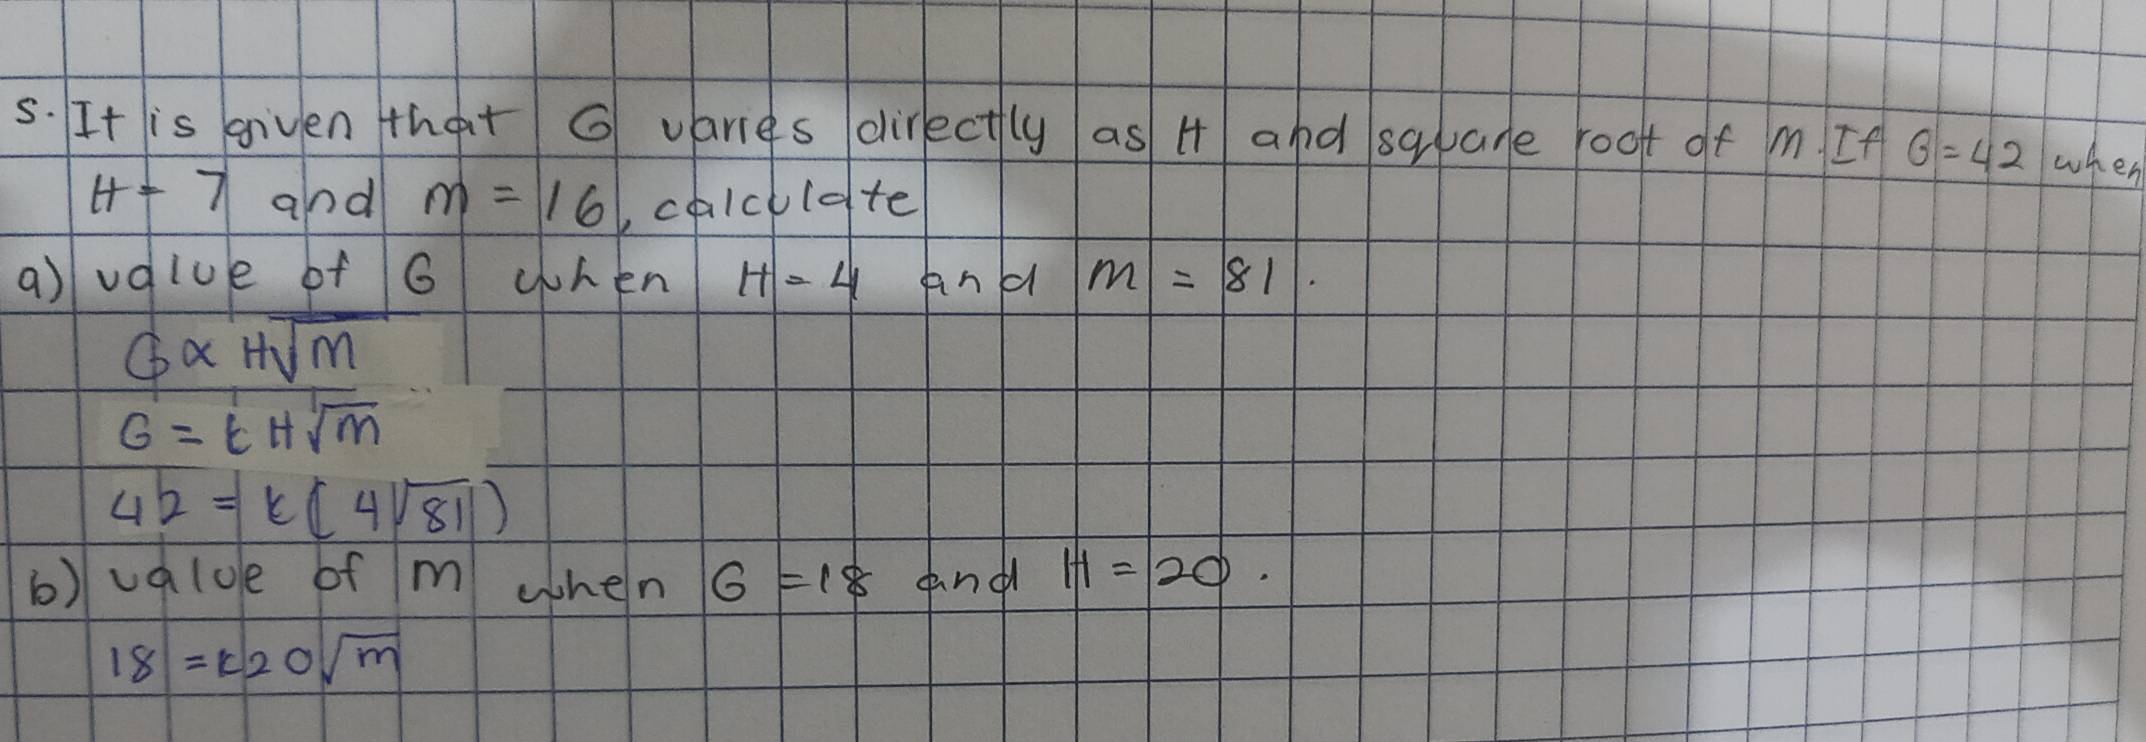 5. It is given that G varies directly as H and square root of m. If G = 42 when
H = 7 and m = 16, calculate
a) value of G when H = 4 and m = 81.
G ∝ H√m
G = k H√m
42 = k ( 4√81 )
b) value of m when G = 18 and H = 20.
18 = k20√m